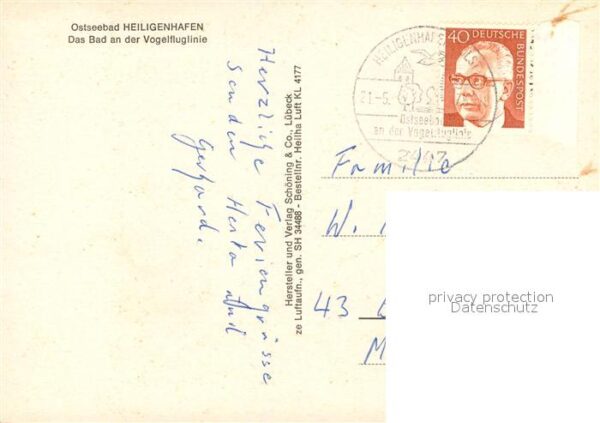 Ostseebad HEILIGENHAFEN
Das Bad an der Vogelfluglinie
Herzliche Feriengrüsse
senden Herta und
Gerhard.
Hersteller und Verlag Schöning & Co., Lübeck
ze Luftaufn., gen. SH 34488 - Bestellnr. Heilha Luft KL 4177
HEILIGENHAFEN
21.-5.
Ostseebad
an der Vogelfluglinie
2447
40 DEUTSCHE
BUNDESPOST
Familie
W.
43
M
privacy protection
Datenschutz